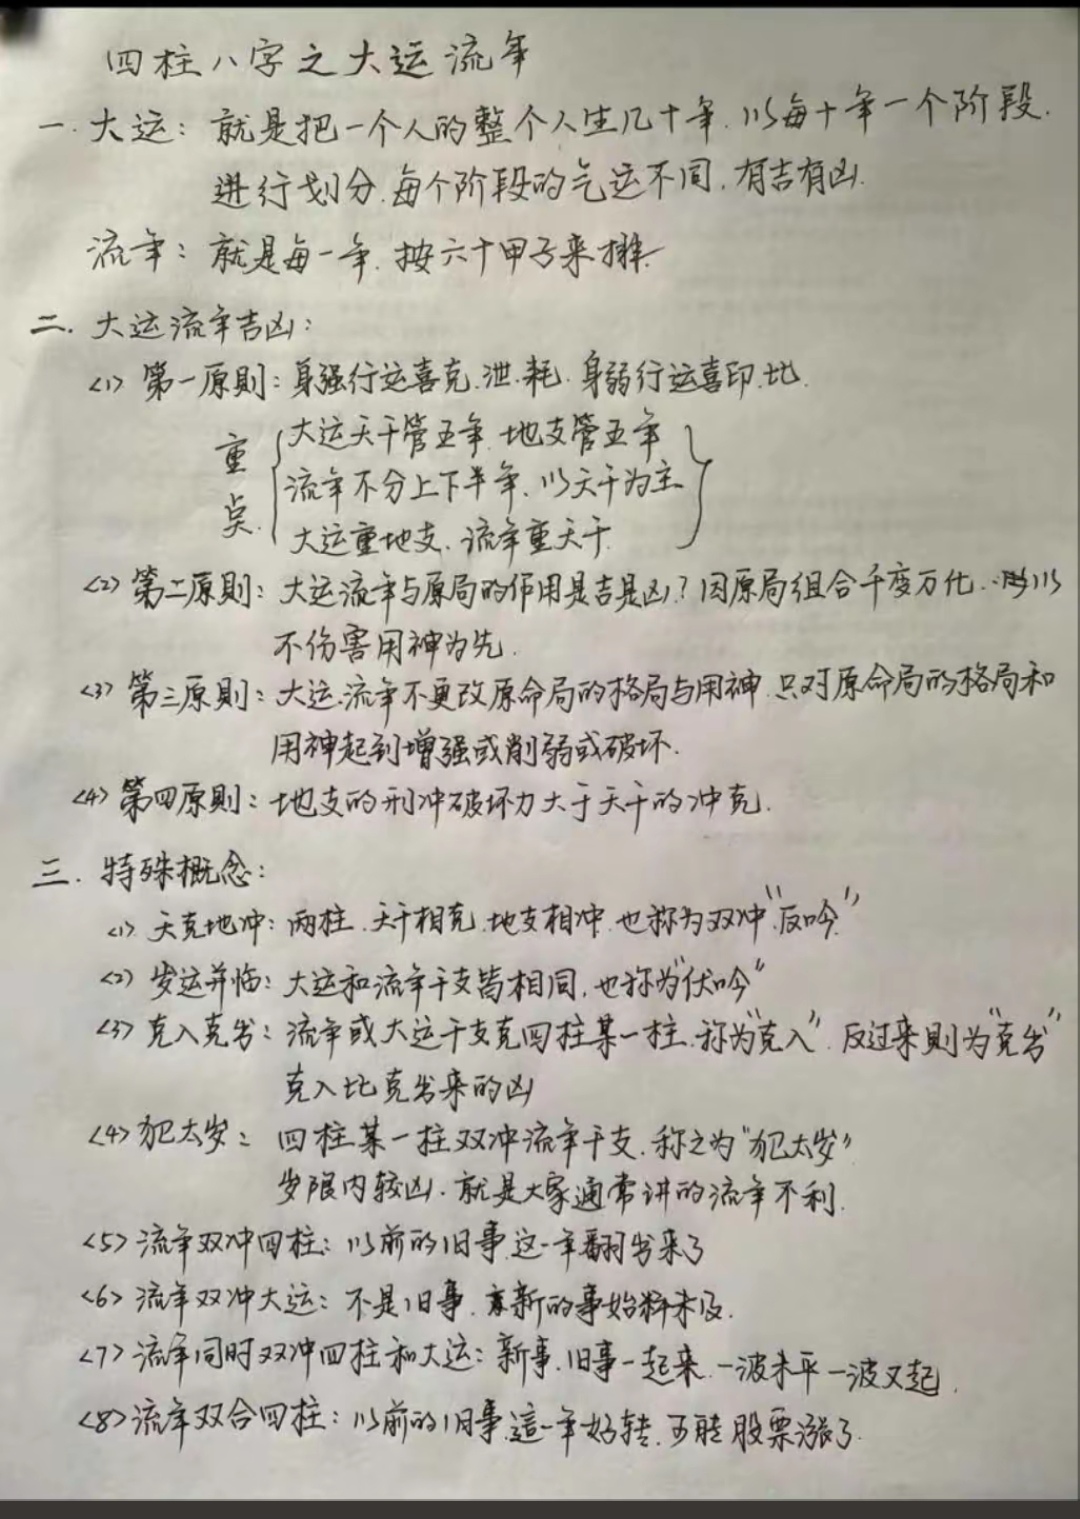 四柱八字之大运流年
一.大运:就是把一个人的整个人生几十年.以每十年一个阶段.
进行划分.每个阶段的气运不同,有吉有凶.
流年:就是每一年.按六十甲子来排.
二.大运流年吉凶:
<1>第一原则:身强行运喜克.泄.耗.身弱行运喜印.比.
重点.
大运天干管五年.地支管五年
流年不分上下半年.以天干为主
大运重地支.流年重天干
<2>第二原则:大运流年与原局的作用是吉是凶?因原局组合千变万化.所以
不伤害用神为先.
<3>第三原则:大运.流年不更改原命局的格局与用神.只对原命局的格局和
用神起到增强或削弱或破坏.
<4>第四原则:地支的刑冲破坏力大于天干的冲克.
三.特殊概念:
<1>天克地冲:两柱.天干相克.地支相冲.也称为双冲"反吟"
<2>岁运并临:大运和流年干支皆相同,也称为"伏吟"
<3>克入克出:流年或大运干支克四柱某一柱.称为"克入".反过来则为"克出"
克入比克出来的凶
<4>犯太岁:四柱某一柱双冲流年干支.称之为"犯太岁"
岁限内较凶.就是大家通常讲的流年不利.
<5>流年双冲四柱:以前的旧事这一年翻出来了
<6>流年双冲大运:不是旧事.新的事始料未及.
<7>流年同时双冲四柱和大运:新事.旧事一起来.一波未平一波又起.
<8>流年双合四柱:以前的旧事,這一年好转.可能股票涨了.